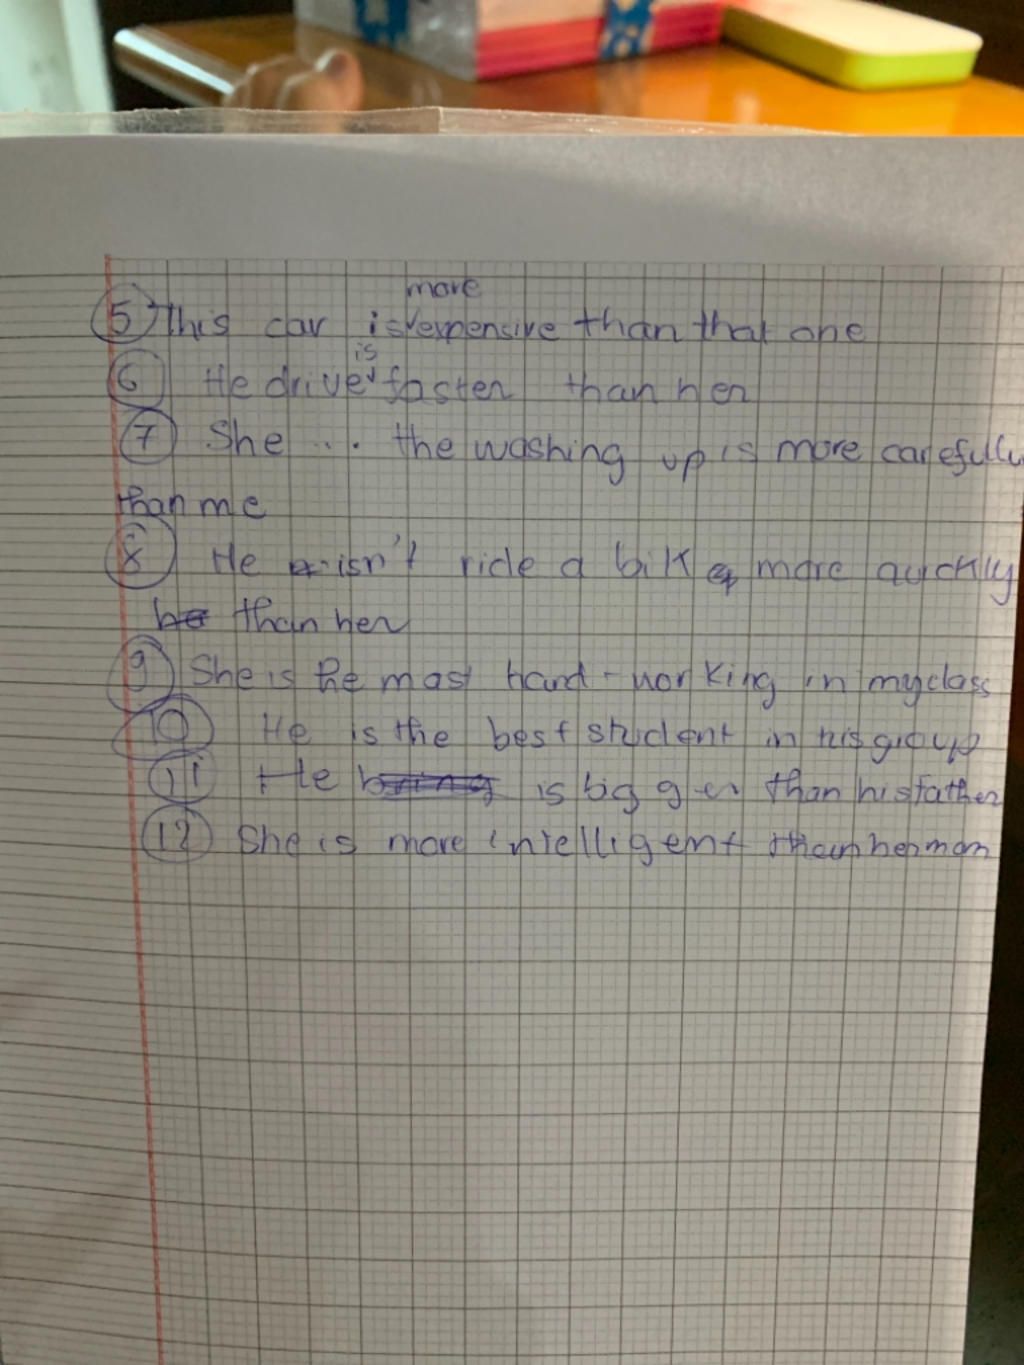 more
⑤ This car is expensive than that one
is
⑥ He drive faster than her
⑦ She ... the washing up is more carefully
than me
⑧ He isn't ride a bike more quickly
than her
⑨ She is the most hard-working in my class
⑩ He is the best student in his group
⑪ He is bigger than his father
⑫ She is more intelligent than her mom